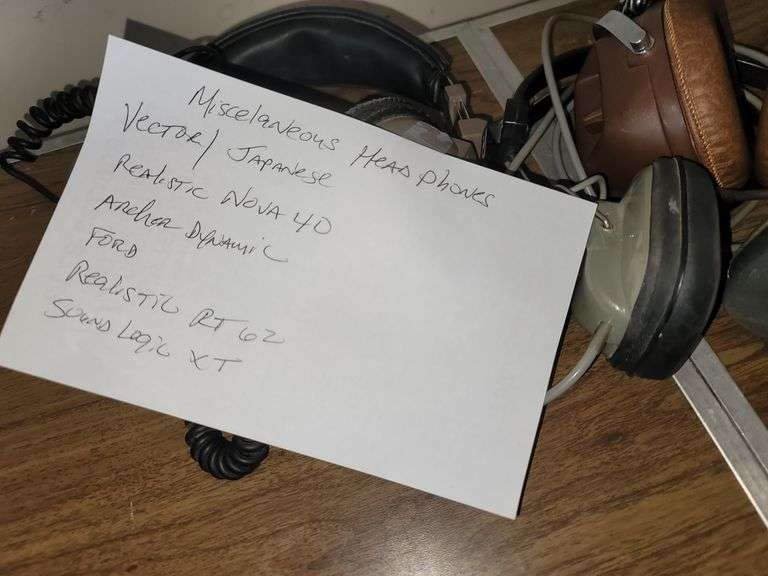 Miscelaneous Headphones
Vector/ Japanese
Realistic Nova 40
Archer Dynamic
Ford
Realistic RT 62
Sound Logic XT